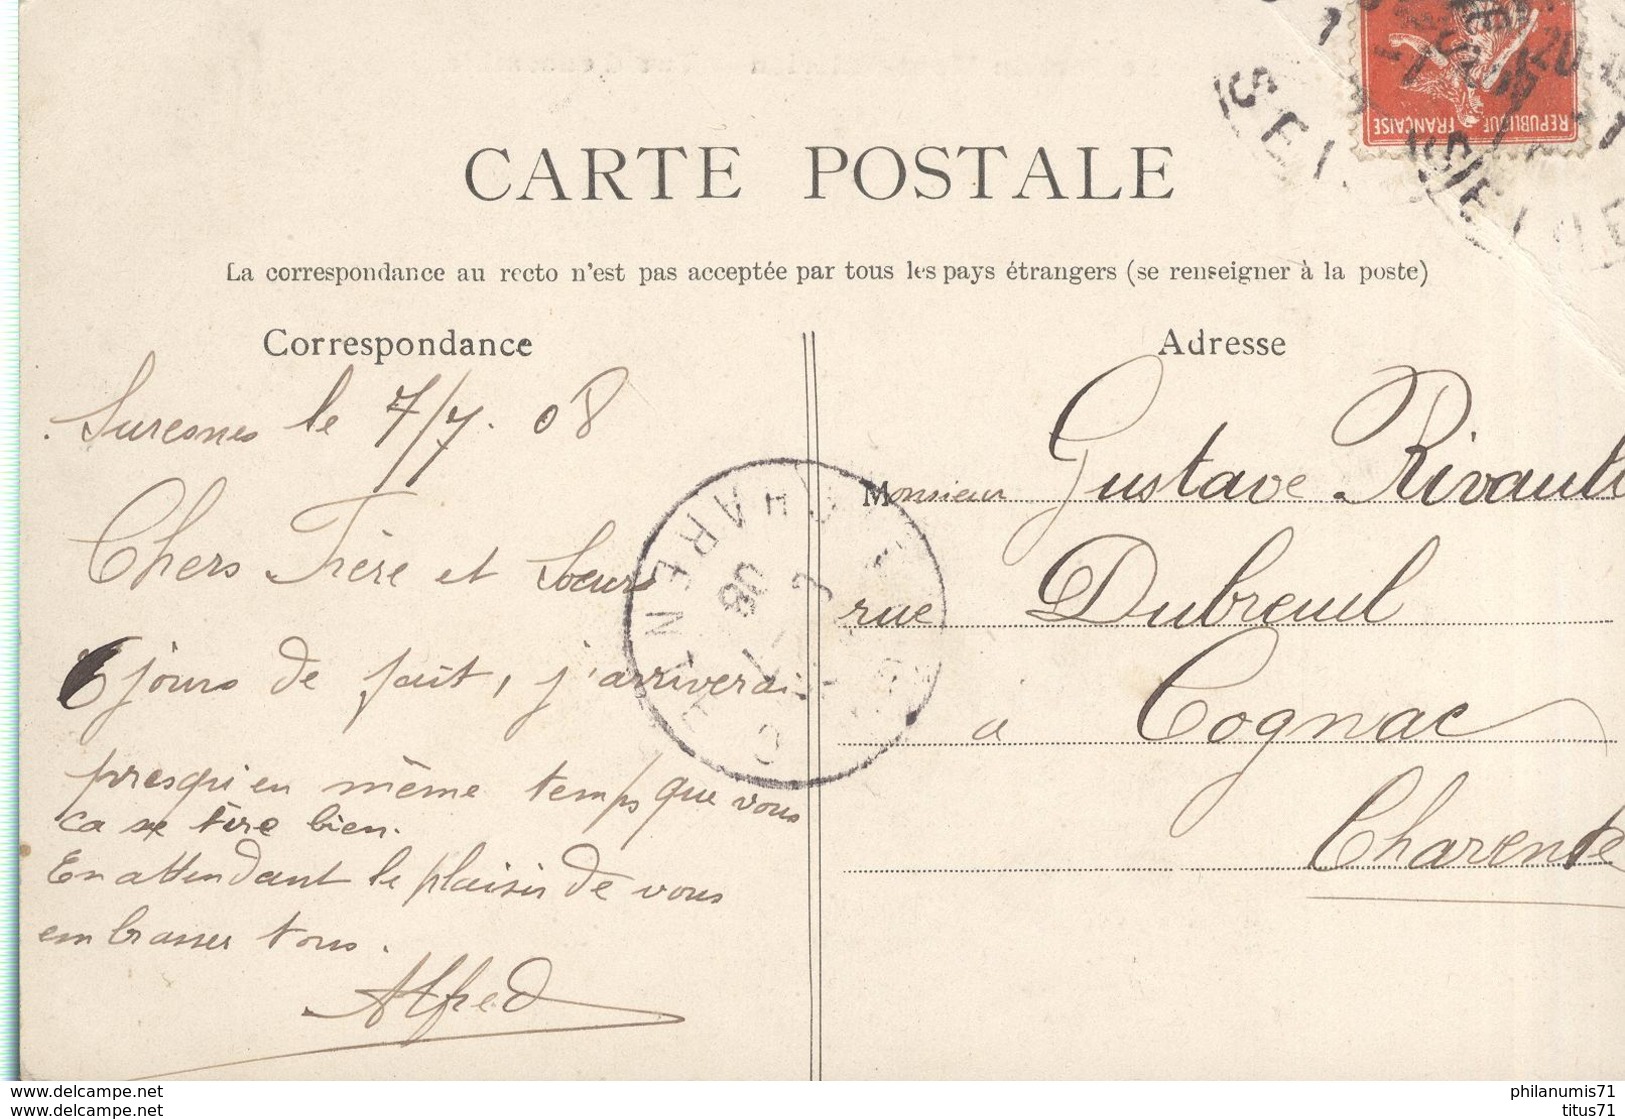 CARTE POSTALE
La correspondance au recto n'est pas acceptée par tous les pays étrangers (se renseigner à la poste)
Correspondance
Suresnes le 7/7. 08
Chers Frère et Soeurs
6 jours de fait, j'arriverai
presqu'en même temps que vous
ca se tire bien.
En attendant le plaisir de vous
embrasser tous.
Alfred
Adresse
Monsieur Gustave Rivault
rue Dubreuil
a Cognac
Charente
REPUBLIQUE FRANÇAISE
COGNAC
CHARENTE
08
www.delcampe.net
www.delcampe.com
philanumis71
titus71